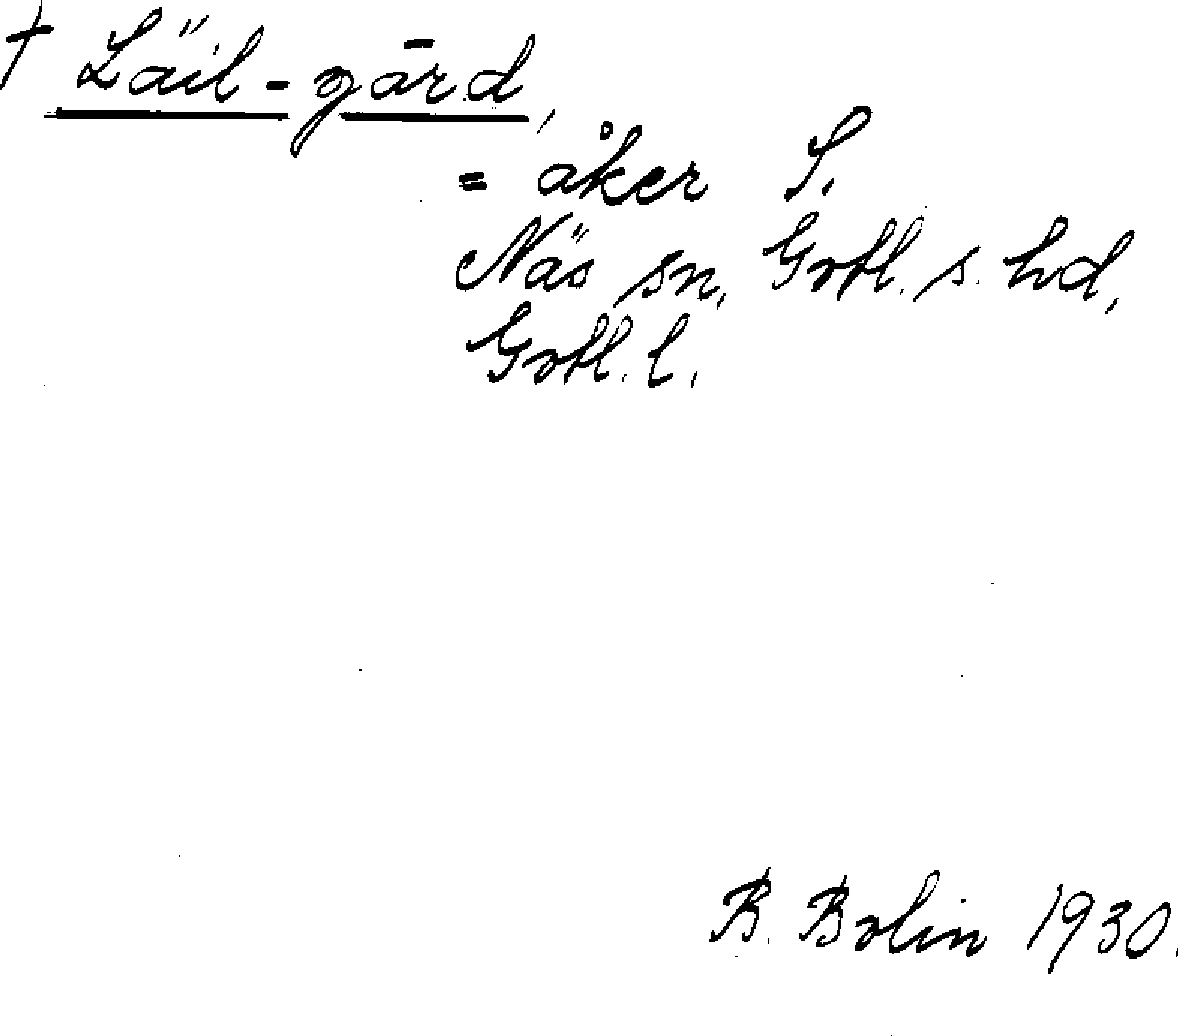 † Läil-gārd,
= åker S.
Näs sn, Gotl. s. hd,
Gotl. l.
B. Bolin 1930.